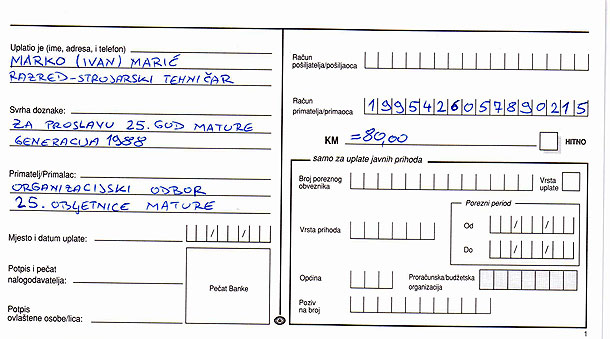 Uplatio je (ime, adresa, i telefon)
MARKO (IVAN) MARIĆ
RAZRED-STROJARSKI TEHNIČAR
Svrha doznake:
ZA PROSLAVU 25. GOD MATURE
GENERACIJA 1988
Primatelj/Primalac:
ORGANIZACIJSKI ODBOR
25. OBLJETNICE MATURE
Mjesto i datum uplate:
Potpis i pečat
nalogodavatelja:
Pečat Banke
Potpis
ovlaštene osobe/lica:
Račun
pošiljatelja/pošiljaoca
Račun
primatelja/primaoca
1995426057890215
KM =80,00
HITNO
samo za uplate javnih prihoda
Broj poreznog
obveznika
Vrsta
uplate
Vrsta prihoda
Porezni period
Od
Do
Općina
Proračunska/budžetska
organizacija
Poziv
na broj
1